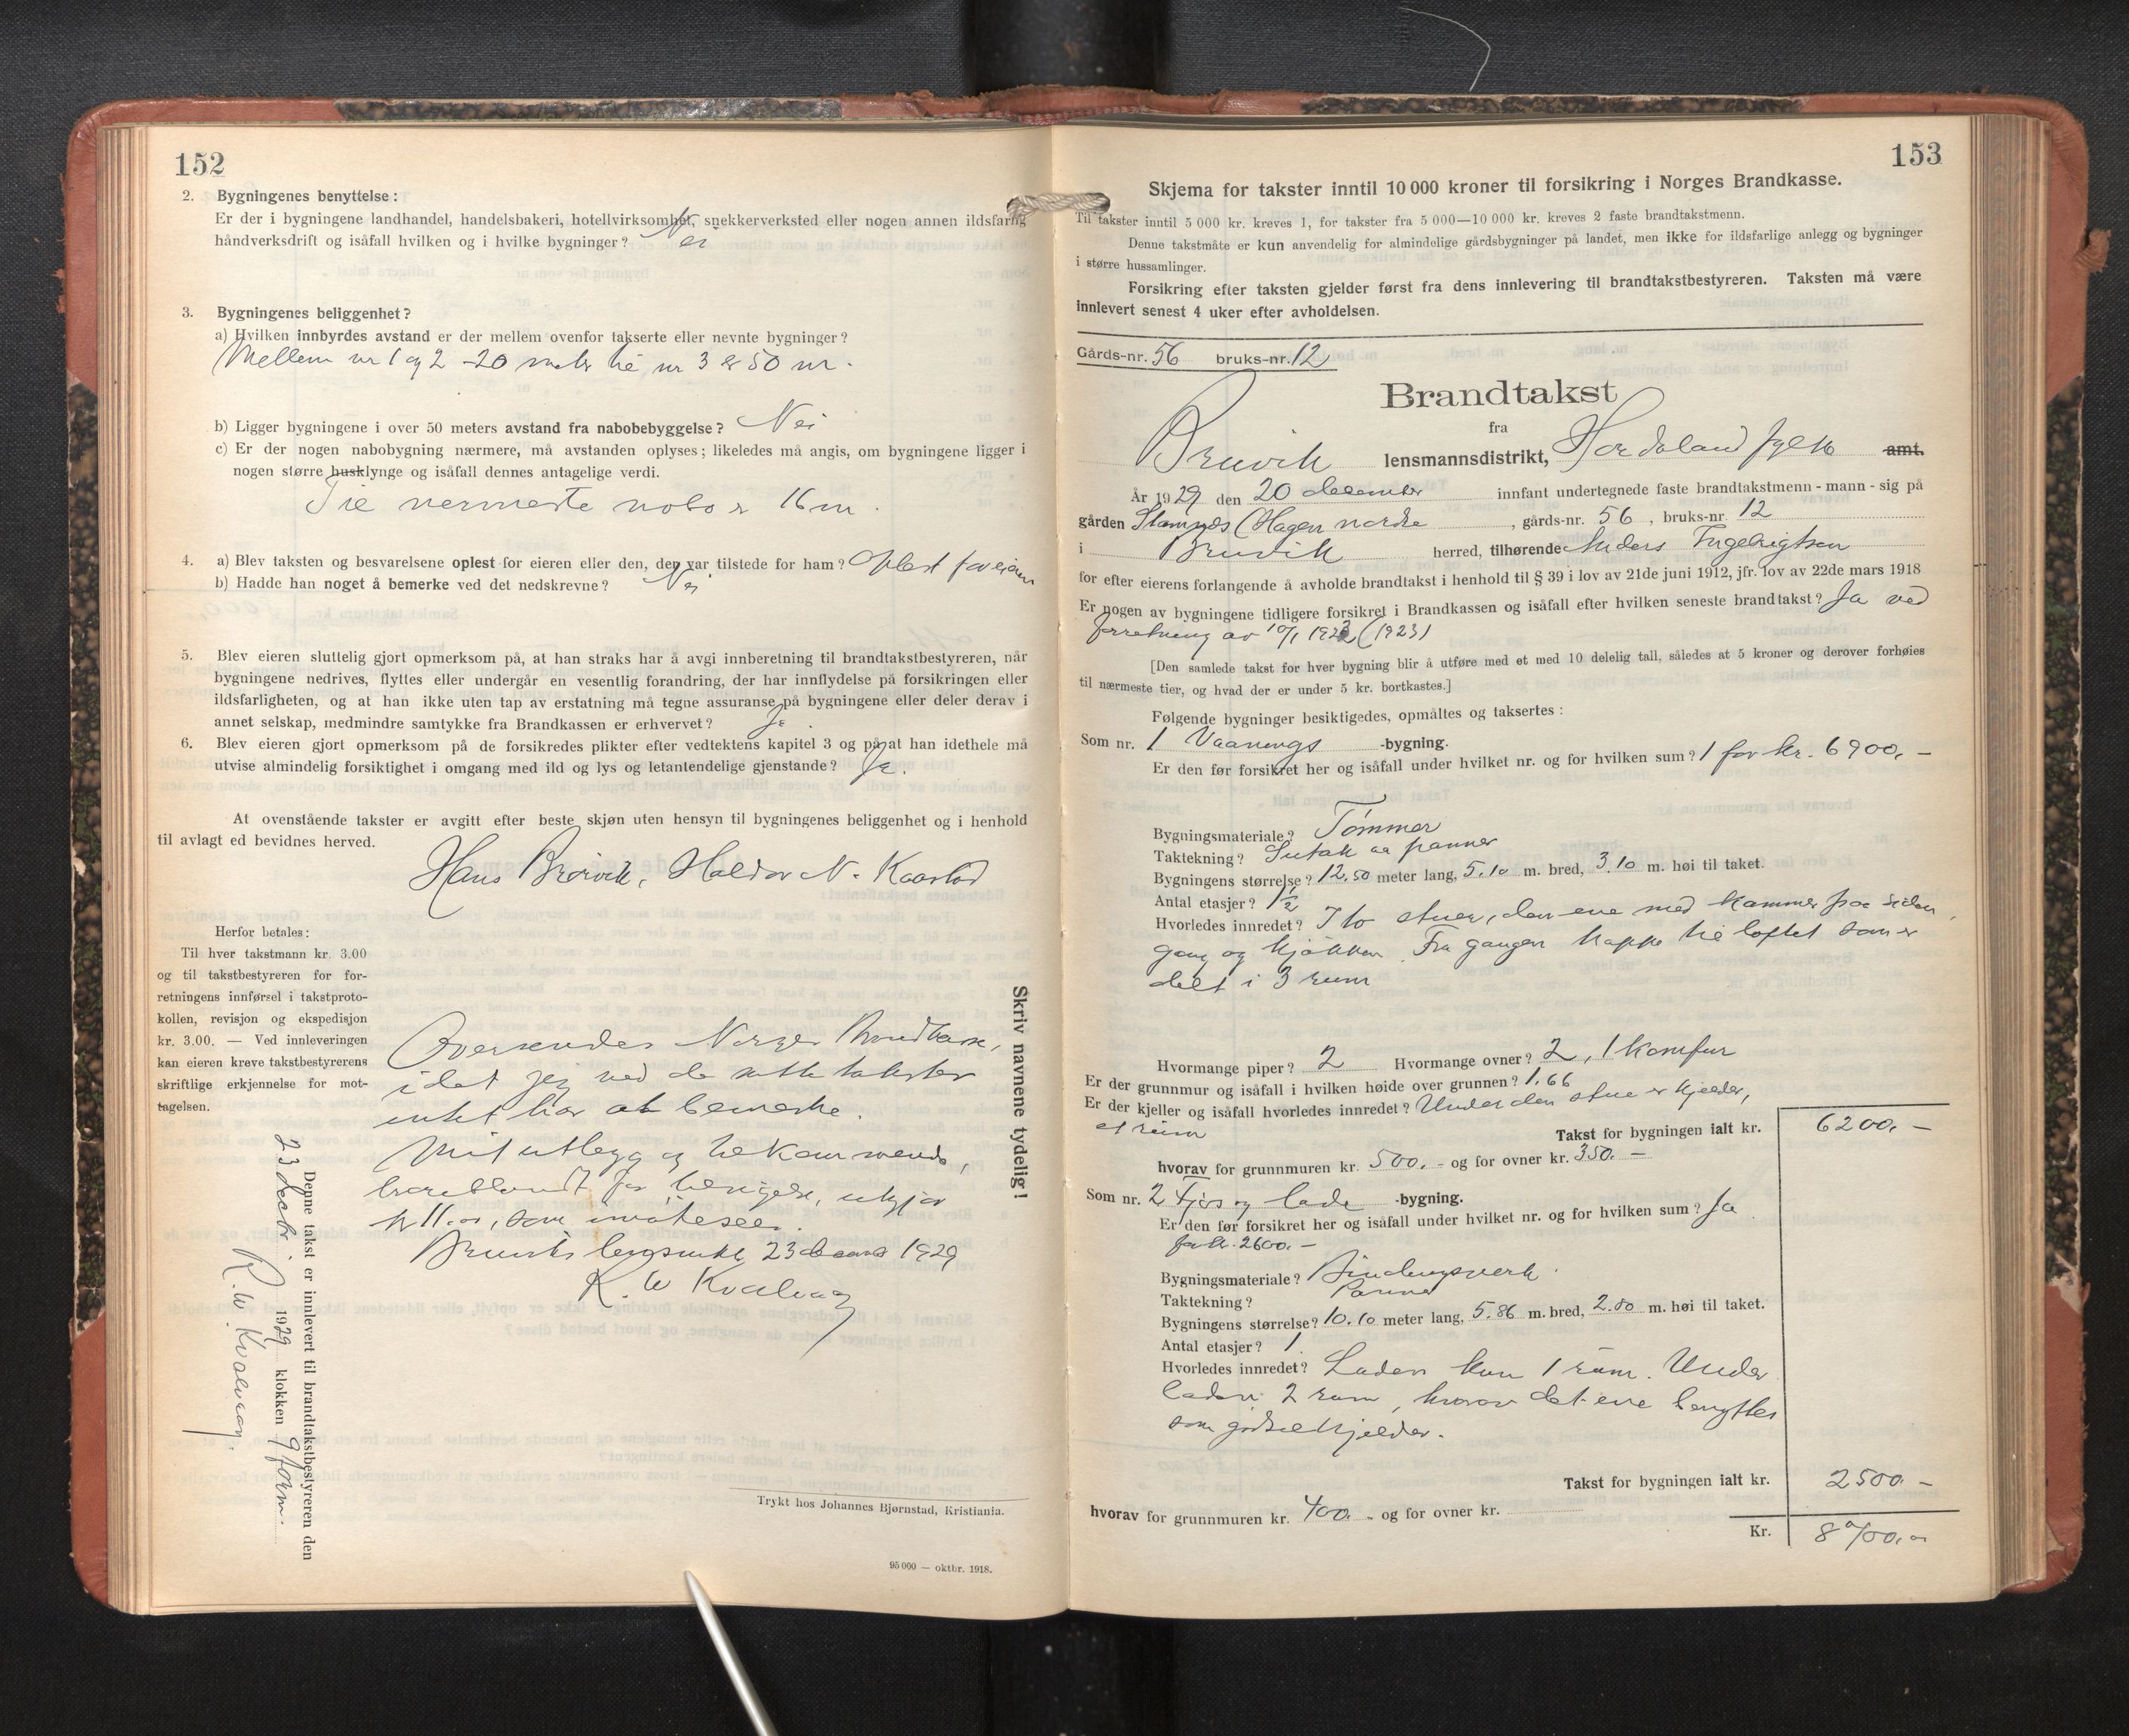 152
2. Bygningenes benyttelse:
Er der i bygningene landhandel, handelsbakeri, hotellvirksomhet, snekkerverksted eller nogen annen ildsfarlig
håndverksdrift og isåfall hvilken og i hvilke bygninger? Nei
3. Bygningenes beliggenhet?
a) Hvilken innbyrdes avstand er der mellem ovenfor takserte eller nevnte bygninger?
Mellem nr 1 og 2 - 20 meter til nr 3 er 50 m.
b) Ligger bygningene i over 50 meters avstand fra nabobebyggelse? Nei
c) Er der nogen nabobygning nærmere, må avstanden oplyses; likeledes må angis, om bygningene ligger i
nogen større husklynge og isåfall dennes antagelige verdi.
Til nermeste nabo er 16 m.
4. a) Blev taksten og besvarelsene oplest for eieren eller den, der var tilstede for ham? Oplest for eieren
b) Hadde han noget å bemerke ved det nedskrevne? Nei
5. Blev eieren sluttelig gjort opmerksom på, at han straks har å avgi innberetning til brandtakstbestyreren, når
bygningene nedrives, flyttes eller undergår en vesentlig forandring, der har innflydelse på forsikringen eller
ildsfarligheten, og at han ikke uten tap av erstatning må tegne assuranse på bygningene eller deler derav i
annet selskap, medmindre samtykke fra Brandkassen er erhvervet? Ja.
6. Blev eieren gjort opmerksom på de forsikredes plikter efter vedtektens kapitel 3 og på at han idethele må
utvise almindelig forsiktighet i omgang med ild og lys og letantendelige gjenstande? Ja.
At ovenstående takster er avgitt efter beste skjøn uten hensyn til bygningenes beliggenhet og i henhold
til avlagt ed bevidnes herved.
Hans Brørvik, Haldor N. Kaastad
Herfor betales:
Til hver takstmann kr. 3.00
og til takstbestyreren for for-
retningens innførsel i takstproto-
kollen, revisjon og ekspedisjon
kr. 3.00. — Ved innleveringen
kan eieren kreve takstbestyrerens
skriftlige erkjennelse for mot-
tagelsen.
Oversendes Norges Brandkasse,
idet jeg ved de satte takster
intet har at bemerke.
Mit utlegg og tilkommende,
iberegnet
kr 11.00, som
Bruvik 23 decembr 1929
R. W Kvalvaag
Skriv navnene tydelig!
Denne takst er innlevert til brandtakstbestyreren den
23 decbr. 1929 klokken 9 form.
R. W. Kvalvaag.
Trykt hos Johannes Bjørnstad, Kristiania.
95 000 — oktbr. 1918.
153
Skjema for takster inntil 10 000 kroner til forsikring i Norges Brandkasse.
Til takster inntil 5 000 kr. kreves 1, for takster fra 5 000—10 000 kr. kreves 2 faste brandtakstmenn.
Denne takstmåte er kun anvendelig for almindelige gårdsbygninger på landet, men ikke for ildsfarlige anlegg og bygninger
i større hussamlinger.
Forsikring efter taksten gjelder først fra dens innlevering til brandtakstbestyreren. Taksten må være
innlevert senest 4 uker efter avholdelsen.
Gårds-nr. 56 bruks-nr. 12
Brandtakst
fra
Bruvik lensmannsdistrikt, Hordaland fylke amt.
År 1929 den 20 december innfant undertegnede faste brandtakstmenn - mann - sig på
gården Stamnes (Hagen nordre , gårds-nr. 56 , bruks-nr. 12
i Bruvik herred, tilhørende Anders Ingebrigtsen
for efter eierens forlangende å avholde brandtakst i henhold til § 39 i lov av 21de juni 1912, jfr. lov av 22de mars 1918
Er nogen av bygningene tidligere forsikret i Brandkassen og isåfall efter hvilken seneste brandtakst? Ja ved
forretning av 10/1 1923 (1923)
[Den samlede takst for hver bygning blir å utføre med et med 10 delelig tall, således at 5 kroner og derover forhøies
til nærmeste tier, og hvad der er under 5 kr. bortkastes.]
Følgende bygninger besiktigedes, opmåltes og taksertes:
Som nr. 1 Vaanings -bygning.
Er den før forsikret her og isåfall under hvilket nr. og for hvilken sum? 1 for kr. 6900,-
Bygningsmateriale? Tømmer
Taktekning? Sutak aa panner
Bygningens størrelse? 12.50 meter lang, 5.10 m. bred, 3.10 m. høi til taket.
Antal etasjer? 1½
Hvorledes innredet? I to stuer, den ene med kammer fra siden,
gang og kjøkken. Fra gangen trappe til loftet som er
delt i 3 rum
Hvormange piper? 2 Hvormange ovner? 2, 1 komfur
Er der grunnmur og isåfall i hvilken høide over grunnen? 1.66
Er der kjeller og isåfall hvorledes innredet? Under den stue er kjelder,
et rum
Takst for bygningen ialt kr. 6200,-
hvorav for grunnmuren kr. 500.- og for ovner kr. 350.-
Som nr. 2 Fjøs og lade -bygning.
Er den før forsikret her og isåfall under hvilket nr. og for hvilken sum? Ja
for kr. 2600.-
Bygningsmateriale? Bindingsverk
Taktekning? Panner
Bygningens størrelse? 10.10 meter lang, 5.86 m. bred, 2.80 m. høi til taket.
Antal etasjer? 1.
Hvorledes innredet? Laden kun 1 rum. Under
laden 2 rum, hvorav det ene benyttes
som gjødselkjelder.
Takst for bygningen ialt kr. 2500.-
hvorav for grunnmuren kr. 400.- og for ovner kr.
Kr. 8700.00